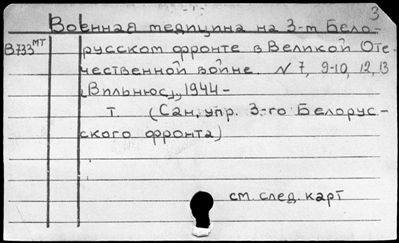 3
Военная медицина на 3-м Бело-
В733мт русском фронте в Великой Оте-
чественной войне. N 7, 9-10, 12, 13
(Вильнюс), 1944 -
т. (Сан. упр. 3-го Белорус-
ского фронта)
см. след. карт